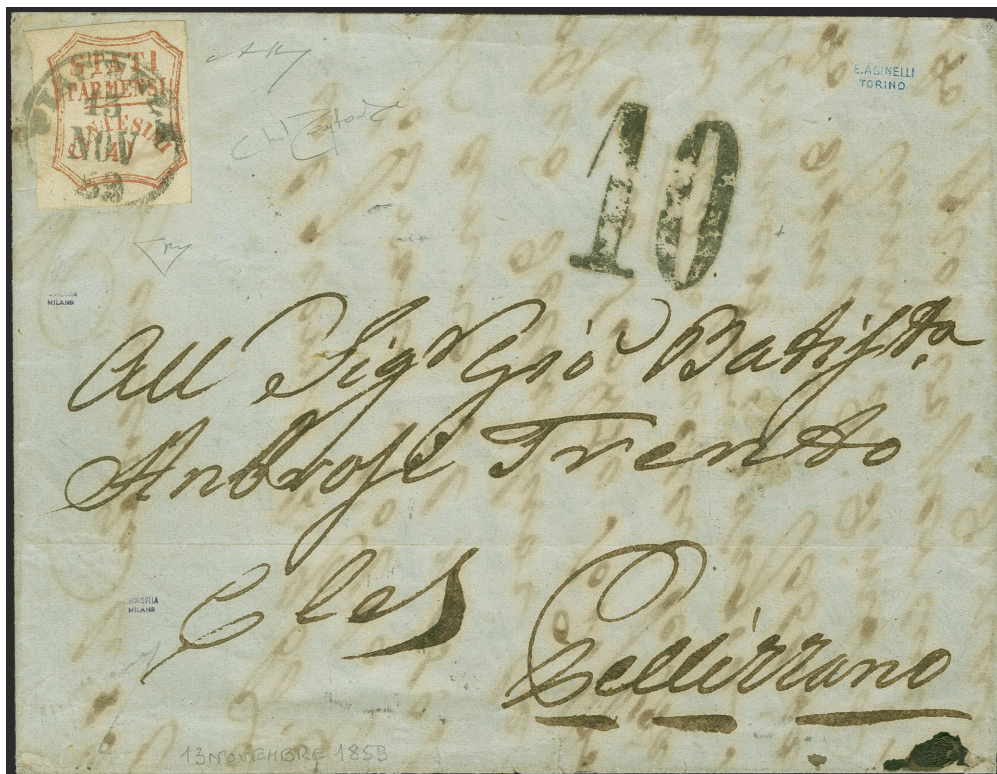 STATI
PARMENSI
CENTESIMI
40
13
NOV
59
E. ASINELLI
TORINO
10
MILANO
All Sigr Giò Batissta
Anbrosi Trento
Cles
Pellizzano
MILANO
13 NOVEMBRE 1859